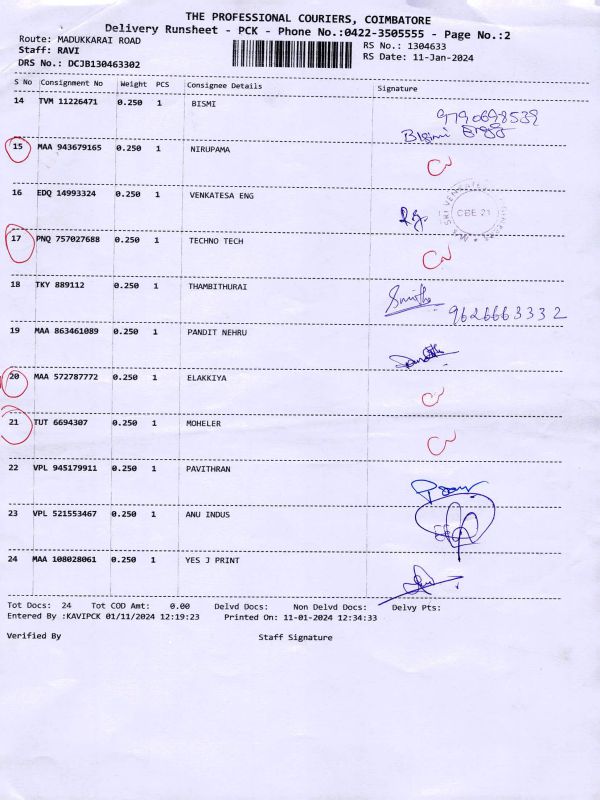 THE PROFESSIONAL COURIERS, COIMBATORE
Delivery Runsheet - PCK - Phone No.:0422-3505555 - Page No.:2
Route: MADUKKARAI ROAD
RS No.: 1304633
Staff: RAVI
RS Date: 11-Jan-2024
DRS No.: DCJB130463302
S No Consignment No Weight PCS Consignee Details Signature
14 TVM 11226471 0.250 1 BISMI
9790698539
Bismi
15 MAA 943679165 0.250 1 NIRUPAMA
16 EDQ 14993324 0.250 1 VENKATESA ENG
CBE 21
17 PNQ 757027688 0.250 1 TECHNO TECH
18 TKY 889112 0.250 1 THAMBITHURAI
9626663332
19 MAA 863461089 0.250 1 PANDIT NEHRU
20 MAA 572787772 0.250 1 ELAKKIYA
21 TUT 6694307 0.250 1 MOHELER
22 VPL 945179911 0.250 1 PAVITHRAN
23 VPL 521553467 0.250 1 ANU INDUS
24 MAA 108028061 0.250 1 YES J PRINT
Tot Docs: 24 Tot COD Amt: 0.00 Delvd Docs: Non Delvd Docs: Delvy Pts:
Entered By :KAVIPCK 01/11/2024 12:19:23 Printed On: 11-01-2024 12:34:33
Verified By Staff Signature